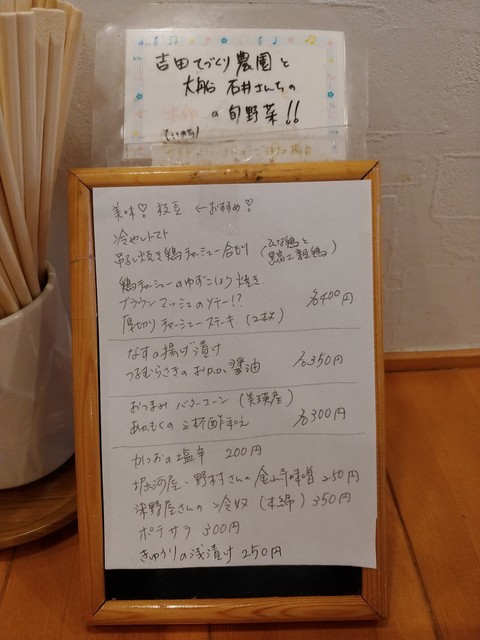 吉田てづくり農園と
大船 石井さんちの
の旬野菜!!
美味♡ 枝豆 ←おすすめ!
冷やしトマト
吊るし焼き鶏チャーシュー合もり (ひな鶏と黒富士親鶏)
鶏チャーシューのゆずこしょう焼き
ブラウンマッシュのソテー!?
各400円
厚切りチャーシューステーキ (2枚)
なすの揚げ漬け
つるむらさきのおかか醤油 各350円
おつまみ バターコーン (美瑛産)
あかもくの三杯酢和え 各300円
かつおの塩辛 200円
堀河屋・野村さんの金山寺味噌 250円
さんの冷奴 (木綿) 350円
ポテサラ 300円
きゅうりの浅漬け 250円